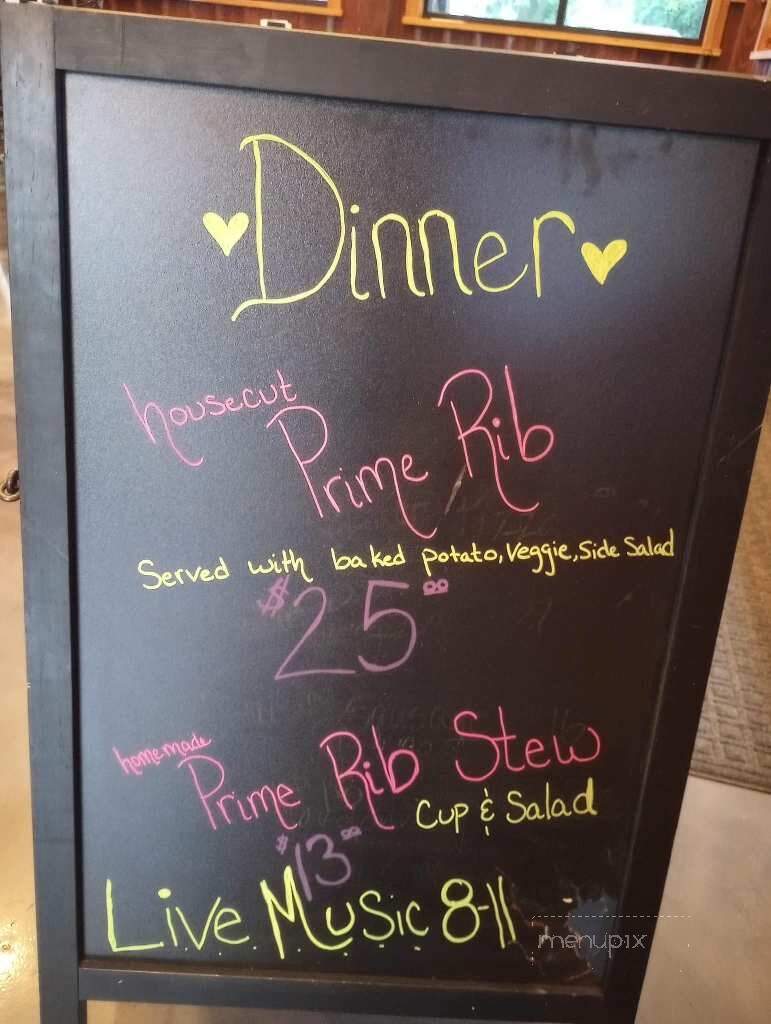 Dinner
housecut
Prime Rib
Served with baked potato, Veggie, Side Salad
$25.00
homemade
Prime Rib Stew
Cup & Salad
$13.00
Live Music 8-11
menupix